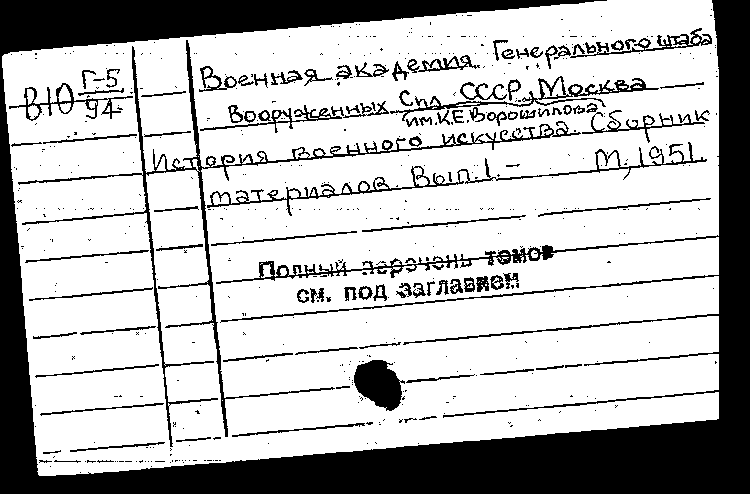 В10 Г-5
94
Военная академия Генерального штаба
Вооруженных Сил СССР, Москва
им. К.Е. Ворошилова
История военного искусства. Сборник
материалов. Вып. 1. – М., 1951.
Полный перечень томов
см. под заглавием